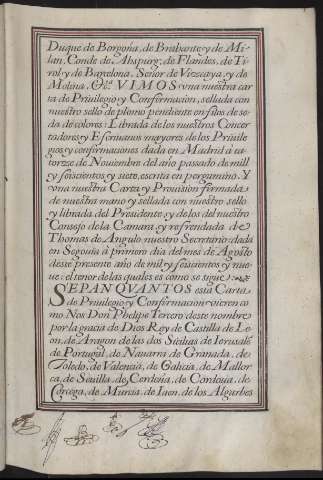 Duque de Borgoña, de Brabante y de Mi-
lan, Conde de Abspurg, de Flandes, de Ti-
rol y de Barcelona, Señor de Vizcaya, y de
Molina, &c. VIMOS vna nuestra car
ta de Priuilegio y Confirmacion, sellada con
nuestro sello de plomo pendiente en filos de se-
da de colores: Librada de los nuestros Concer-
tadores y Escriuanos mayores de los Priuile
gios y confirmaciones dada en Madrid a ca-
torze de Nouiembre del año passado de mill
y seiscientos y siete, escrita en pergamino. Y
vna nuestra Carta y Prouision firmada
de nuestra mano y sellada con nuestro sello
y librada del Presidente, y de los del nuestro
Consejo de la Camara y refrendada de
Thomas de Angulo nuestro Secretario dada
en Segouia á primero dia del mes de Agosto
deste presente año de mil y seiscientos y nue-
ue: el tenor de las quales es como se sigue
SEPAN QVANTOS esta Carta
de Priuilegio y Confirmacion vieren co
mo Nos Don Phelipe Tercero deste nombre
por la gracia de Dios Rey de Castilla de Le
on, de Aragon de las dos Sicilias de Ierusalē
de Portugal, de Nauarra de Granada, de
Toledo, de Valencia, de Galicia, de Mallor
ca, de Seuilla, de Cerdeña, de Cordoua, de
Corcega, de Murcia, de Iaen, de los Algarbes